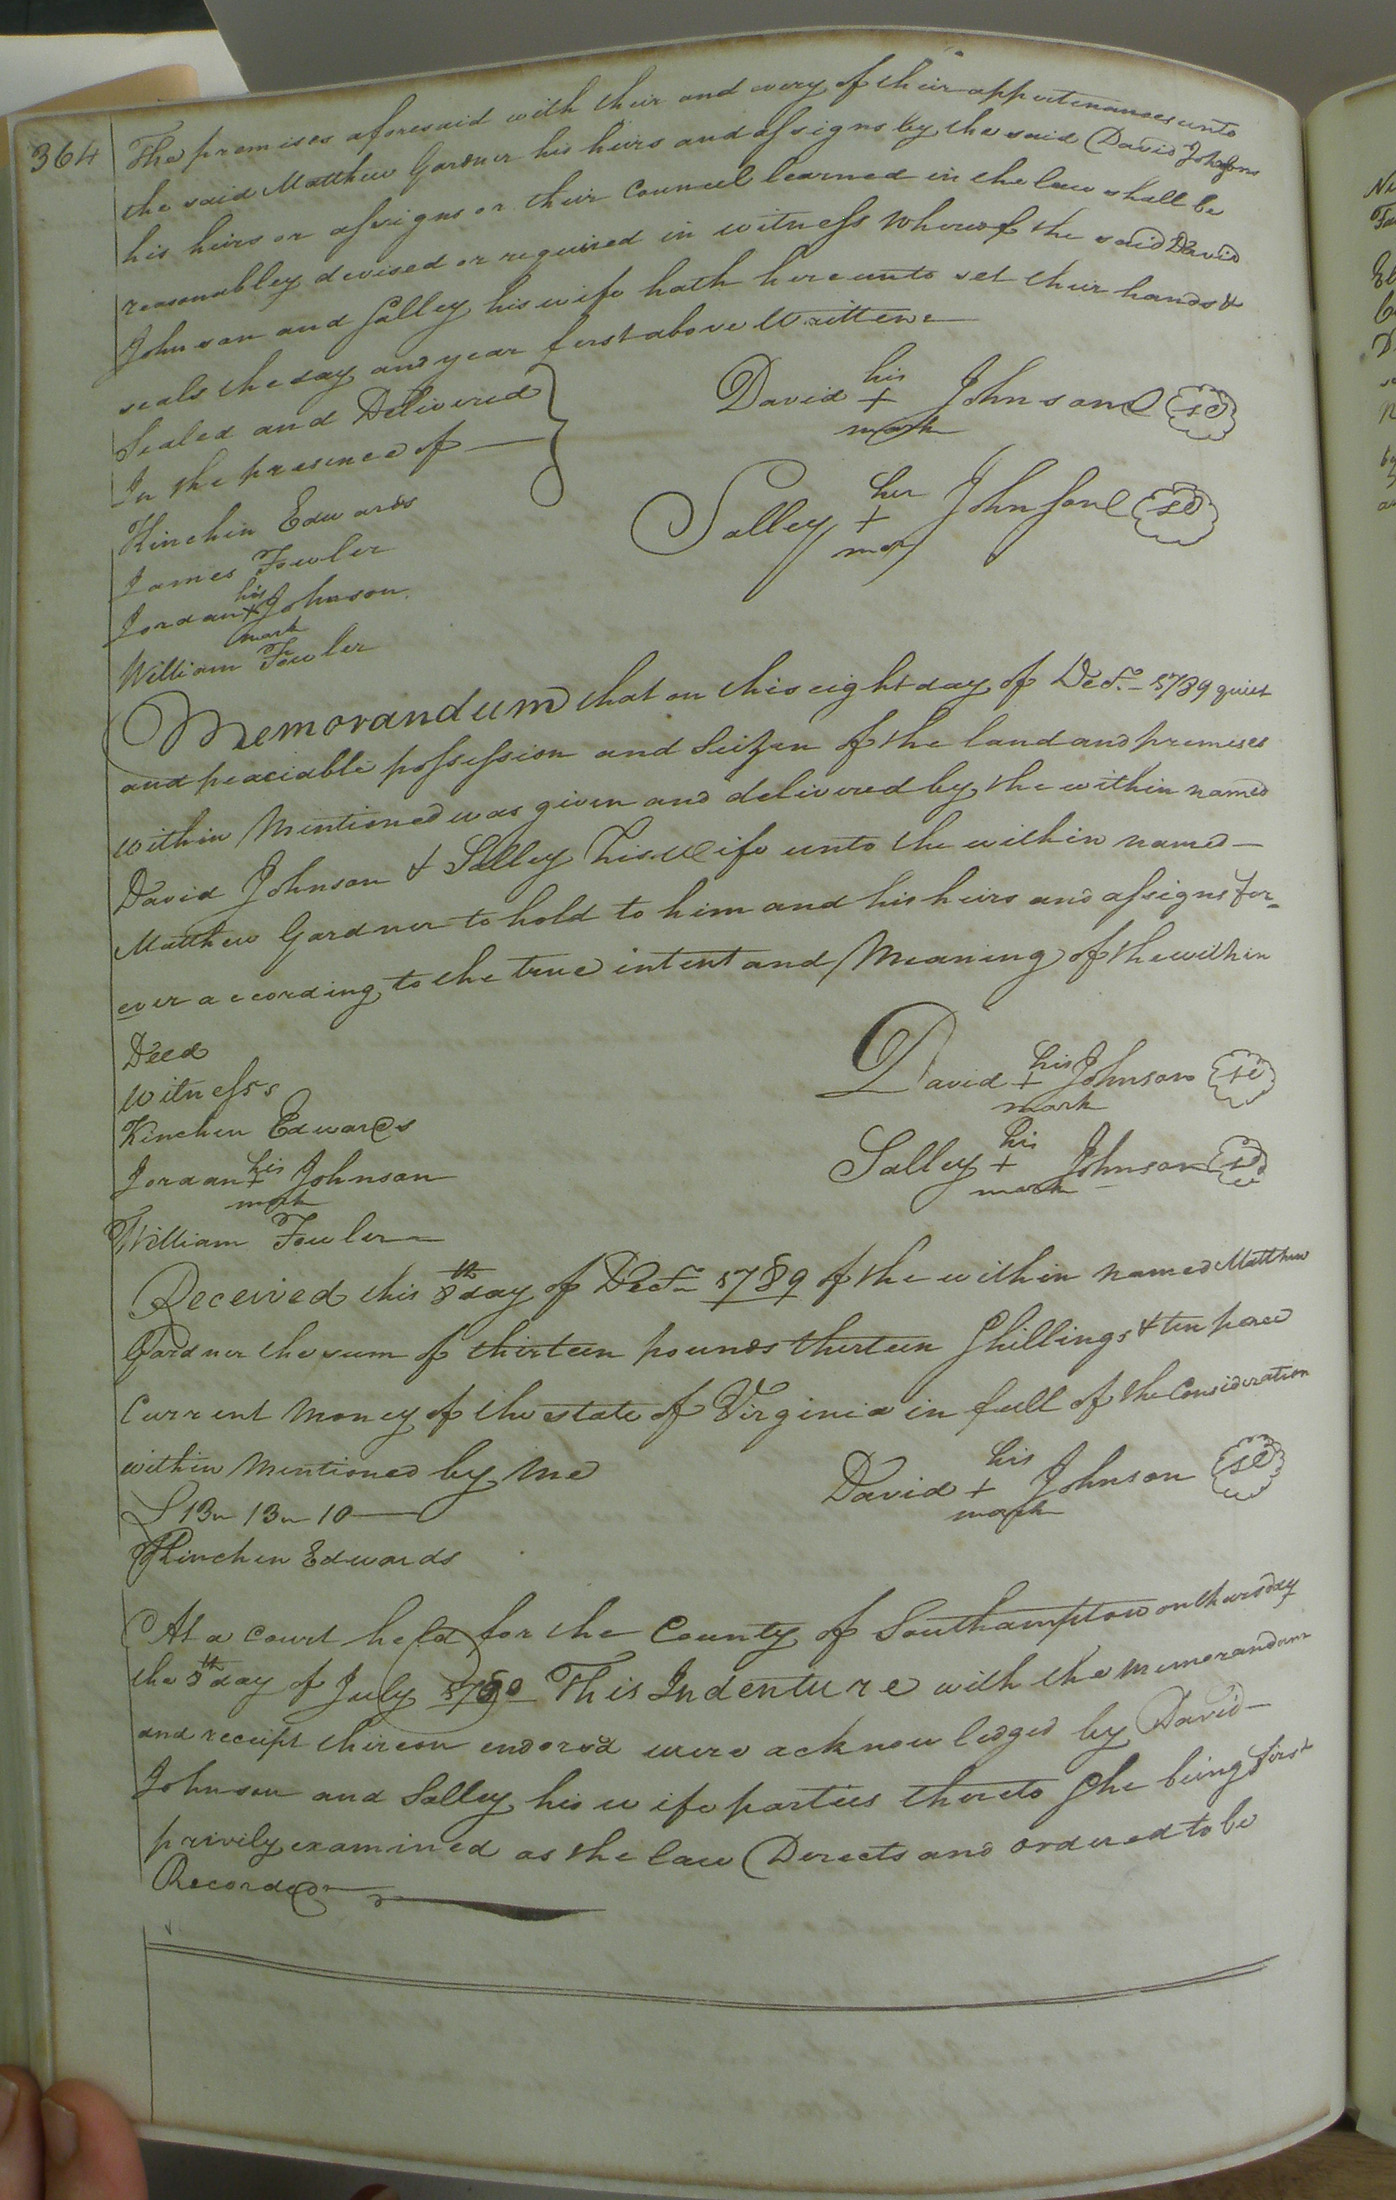 364
The premises aforesaid with their and every of their appertenances unto
the said Matthew Gardner his heirs and assigns by the said David Johnson
his heirs or assigns or their Councel learned in the law shall be
reasonabley devised or required in witness whereof the said David
Johnson and Salley his wife hath hereunto set their hands &
seals the day and year first above Written
Sealed and Delivered
In the presence of
Kinchin Edwards
James Fowler
Jordan his + mark Johnson
William Fowler
David his + mark Johnson
Salley her + mark Johnson
Memorandum that on this eight day of Decr. 1789 quiet
and peaciable possession and Seizen of the land and premises
within Mentioned was given and delivered by the within named
David Johnson & Salley his Wife unto the within named
Matthew Gardner to hold to him and his heirs and assigns for-
ever according to the true intent and Meaning of the within
Deed
Witness
Kinchen Edwards
Jordan his + mark Johnson
William Fowler
David his + mark Johnson
Salley his + mark Johnson
Received this 8th day of Decr. 1789 of the within named Matthew
Gardner the sum of thirteen pounds thirteen Shillings & ten pence
Current Money of the state of Virginia in full of the Consideration
within Mentioned by me
£ 13 " 13 " 10
Kinchen Edwards
David his + mark Johnson
At a Court held for the County of Southampton on thursday
the 8th day of July 1790 This Indenture with the memorandum
and receipt thereon endorsd were acknowledged by David
Johnson and Salley his wife parties thereto She being first
privily examined as the law Directs and ordered to be
Recorded